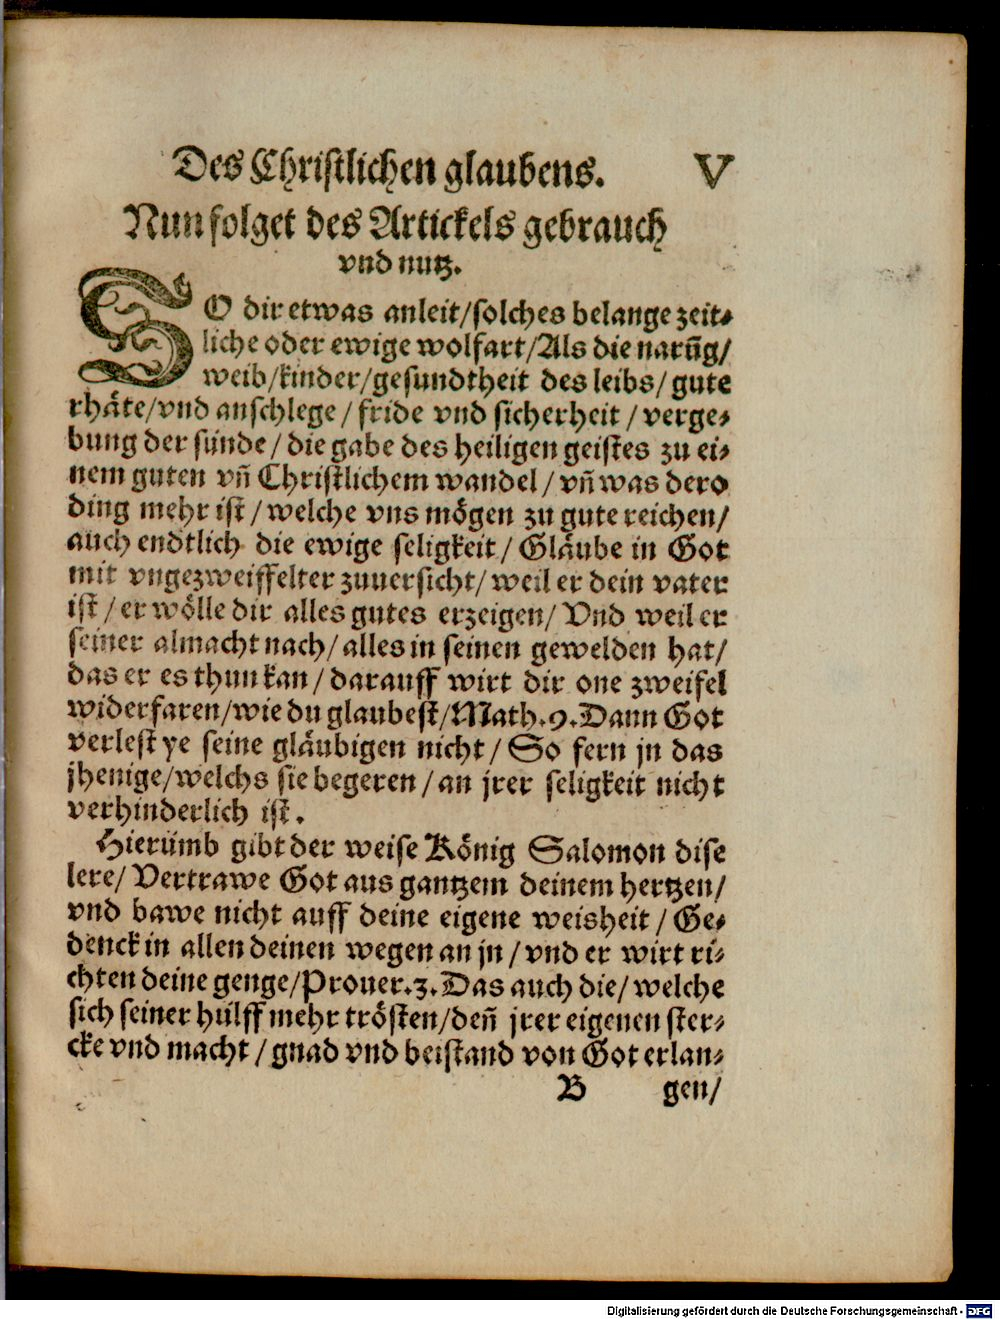 Des Christlichen glaubens. V
Nun folget des Artickels gebrauch
vnd nutz.
SO dir etwas anleit/solches belange zeit⸗
liche oder ewige wolfart/Als die narūg/
weib/kinder/gesundtheit des leibs/gute
rhäte/vnd anschlege/fride vnd sicherheit/verge⸗
bung der sünde/die gabe des heiligen geistes zu ei⸗
nem guten vn̄ Christlichem wandel/vn̄ was dero
ding mehr ist/welche vns mögen zu gute reichen/
auch endtlich die ewige seligkeit/Gläube in Got
mit vngezweiffelter zuuersicht/weil er dein vater
ist/er wölle dir alles gutes erzeigen/Vnd weil er
seiner almacht nach/alles in seinen gewelden hat/
das er es thun kan/darauff wirt dir one zweifel
widerfaren/wie du glaubest/Math.9.Dann Got
verlest ye seine gläubigen nicht/So fern jn das
jhenige/welchs sie begeren/an jrer seligkeit nicht
verhinderlich ist.
Hierümb gibt der weise König Salomon dise
lere/Vertrawe Got aus gantzem deinem hertzen/
vnd bawe nicht auff deine eigene weisheit/Ge⸗
denck in allen deinen wegen an jn/vnd er wirt ri⸗
chten deine genge/Prouer.3.Das auch die/welche
sich seiner hülff mehr trösten/den̄ jrer eigenen ster⸗
cke vnd macht/gnad vnd beistand von Got erlan⸗
B gen/
Digitalisierung gefördert durch die Deutsche Forschungsgemeinschaft - DFG